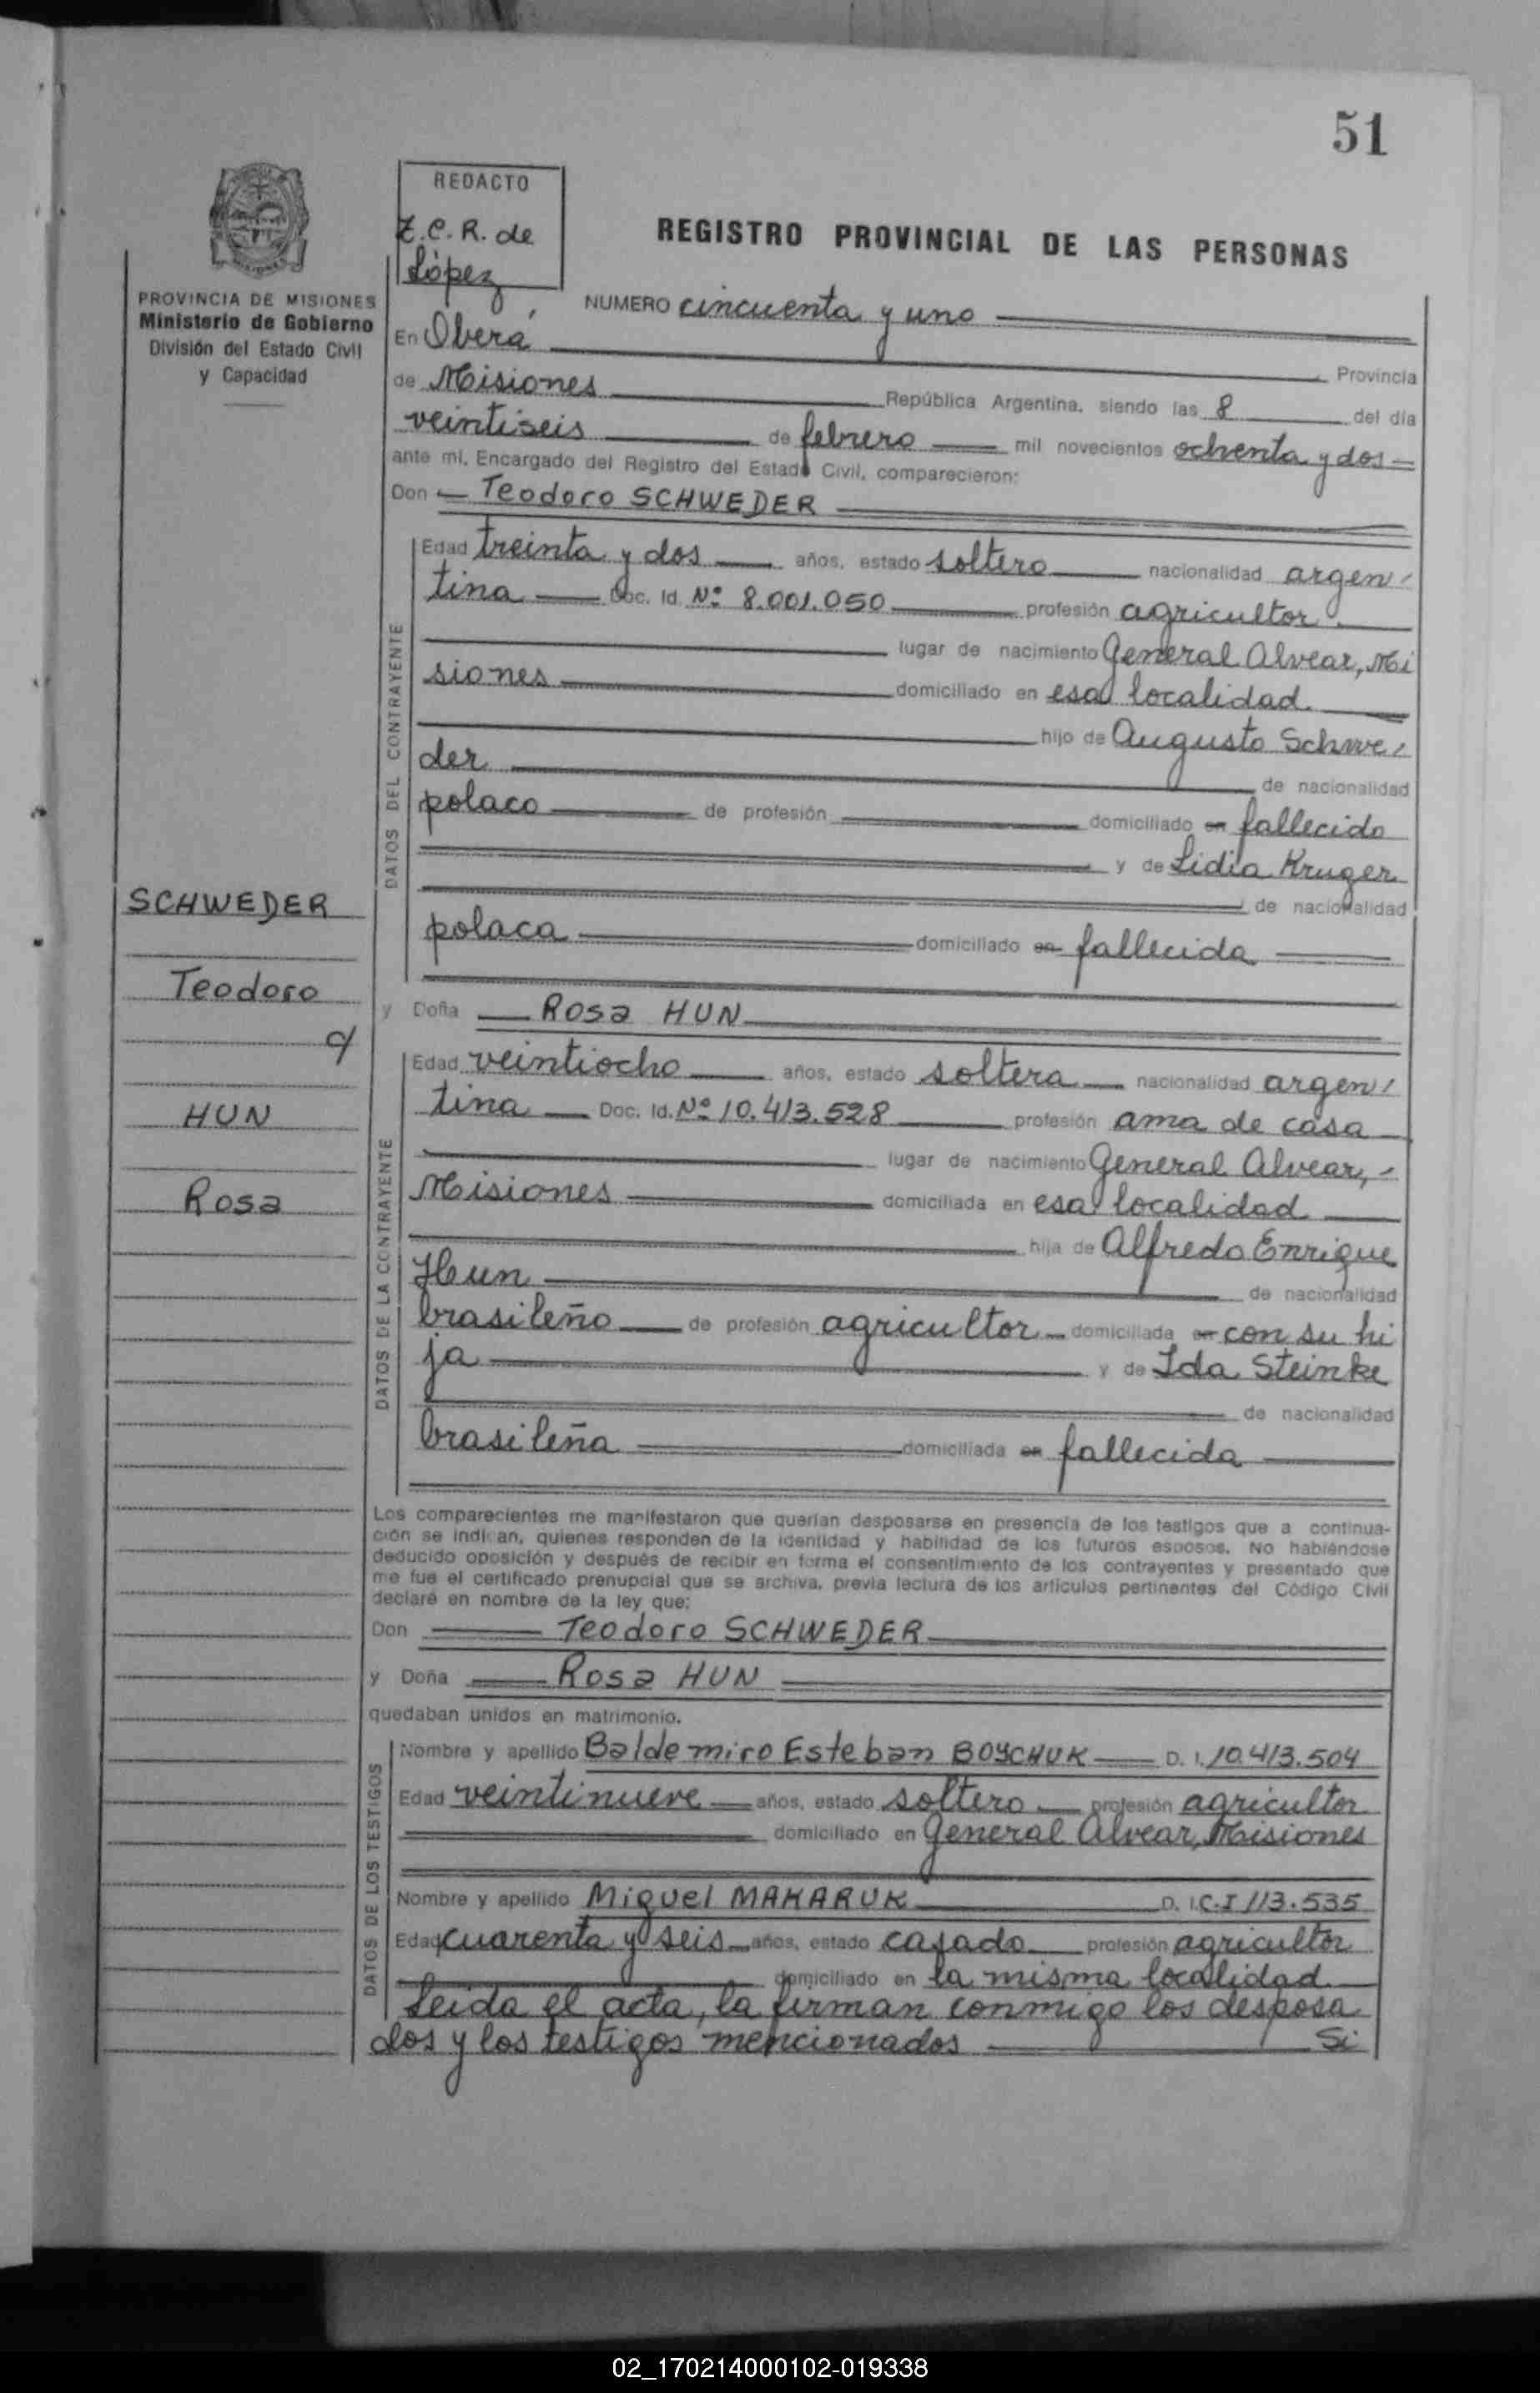 51
REDACTO
Z.C.R. de
López
REGISTRO PROVINCIAL DE LAS PERSONAS
PROVINCIA DE MISIONES
Ministerio de Gobierno
División del Estado Civil
y Capacidad
NUMERO cincuenta y uno
En Oberá
Provincia
de Misiones República Argentina, siendo las 8 del día
veintiseis de febrero mil novecientos ochenta y dos
ante mí, Encargado del Registro del Estado Civil, comparecieron:
Don Teodoro SCHWEDER
DATOS DEL CONTRAYENTE
Edad treinta y dos años, estado soltero nacionalidad argen/
tina Doc. Id. Nº 8.001.050 profesión agricultor
lugar de nacimiento General Alvear, Mi
siones domiciliado en esa localidad
hijo de Augusto Schwe/
der de nacionalidad
polaco de profesión domiciliado en fallecido
y de Lidia Kruger
de nacionalidad
polaca domiciliado en fallecida
y Doña Rosa HUN
SCHWEDER
Teodoro
c/
HUN
Rosa
DATOS DE LA CONTRAYENTE
Edad veintiocho años, estado soltera nacionalidad argen/
tina Doc. Id. Nº 10.413.528 profesión ama de casa
lugar de nacimiento General Alvear,
Misiones domiciliada en esa localidad
hija de Alfredo Enrique
Hun de nacionalidad
brasileño de profesión agricultor domiciliada en con su hi
ja y de Ida Steinke
de nacionalidad
brasileña domiciliada en fallecida
Los comparecientes me manifestaron que querían desposarse en presencia de los testigos que a continua-
ción se indican, quienes responden de la identidad y habilidad de los futuros esposos. No habiéndose
deducido oposición y después de recibir en forma el consentimiento de los contrayentes y presentado que
me fue el certificado prenupcial que se archiva, previa lectura de los artículos pertinentes del Código Civil
declaré en nombre de la ley que:
Don Teodoro SCHWEDER
y Doña Rosa HUN
quedaban unidos en matrimonio.
DATOS DE LOS TESTIGOS
Nombre y apellido Baldemiro Esteban BOYCHUK D. I. 10.413.504
Edad veintinueve años, estado soltero profesión agricultor
domiciliado en General Alvear, Misiones
Nombre y apellido Miguel MAKARUK D. I. C.I 113.535
Edad cuarenta y seis años, estado casado profesión agricultor
domiciliado en la misma localidad
Leida el acta, la firman conmigo los desposa
dos y los testigos mencionados Si
02_170214000102-019338